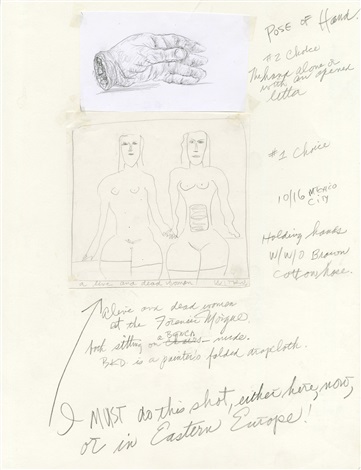 POSE OF Hand
#2 Choice
The hand alone or
with an opened
letter
#1 Choice
10/16 MEXICO
CITY
Holding hands
W/W/O
Cotton hose.
a live and dead woman
Alive and dead women
at the Forensic Morgue
Both sitting on a BENCH nude.
BKD is a painter's folded dropcloth.
I MUST do this shot, either here, now,
or in Eastern Europe!